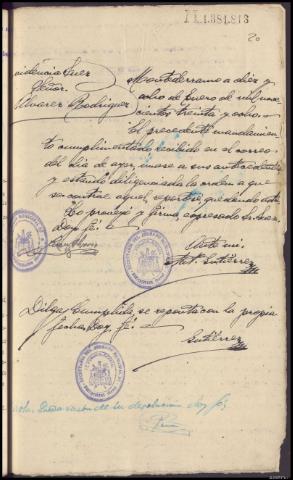 11.1381.813
20
videncia Juez
Señor.
Alvarez Rodriguez
Montederramo a diez y
ocho de Enero de mil nove-
cientos treinta y ocho.
El precedente mandamien-
to cumplimentado recibido en el correo
del dia de ayer, unase a sus antecedentes
y estando diligenciada la orden a que
se contrae aquel, reportese quedando nota
Lo proveyo y firma, expresado Sr. Juez
doy fé.
Ante mi,
Gutiérrez
Dilga. Cumplida, se reporta con la propia
fecha. Doy fé.
Gutiérrez
Nota. Queda razón de su devolucion doy fé.